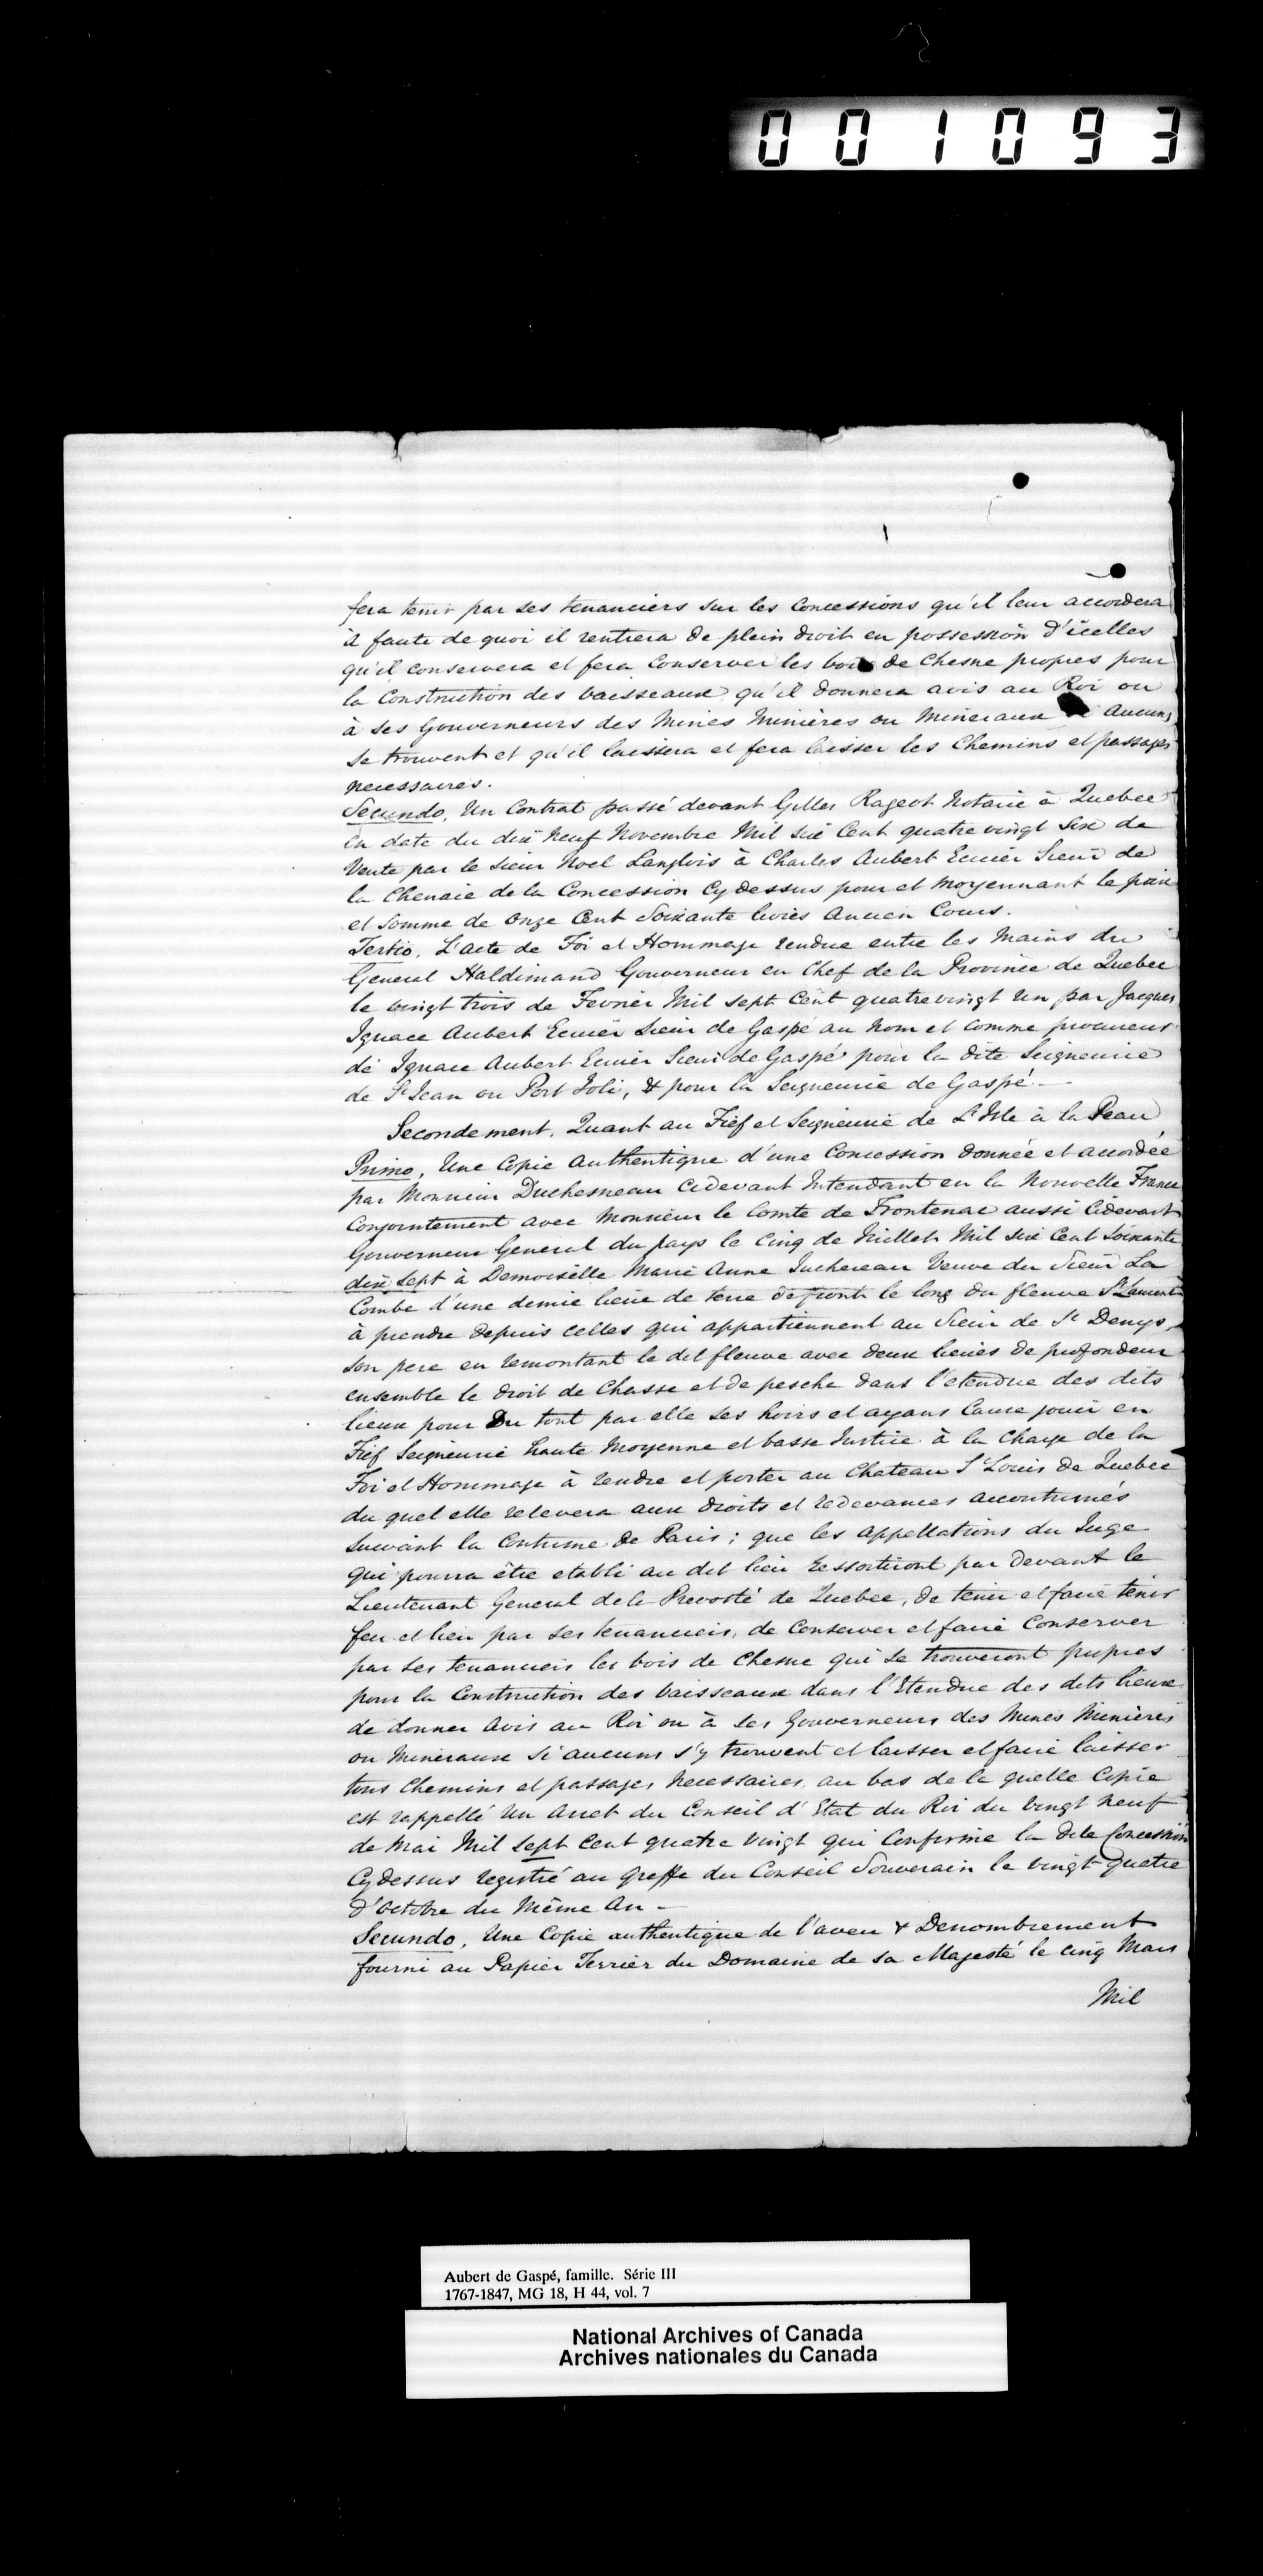 001093
fera tenir par ses tenanciers sur les Concessions qu'il leur accordera
à faute de quoi il rentrera de plein droit en possession d'icelles
qu'il conservera et fera Conserver les bois de Chesne propres pour
la Construction des vaisseaux qu'il donnera avis au Roi ou
à ses Gouverneurs des Mines Minières ou Mineraux si Aucuns
se trouvent et qu'il laissera et fera laisser les Chemins et passages
necessaires.
Secundo, Un Contrat passé devant Gilles Rageot Notaire à Quebec
en date du dix Neuf Novembre Mil six Cent quatre vingt Six de
Vente par le sieur Noel Langlois à Charles Aubert Ecuier Sieur de
la Chenaie de la Concession Cy dessus pour et Moyennant le prix
et Somme de Onze Cent Soixante livres Ancien Cours.
Tertio, L'acte de Foi et Hommage rendue entre les Mains du
General Haldimand Gouverneur en Chef de la Province de Quebec
le vingt trois de Fevrier Mil sept Cent quatrevingt Un par Jacques
Ignace Aubert Ecuier Sieur de Gaspé au Nom et Comme procureur
de Ignace Aubert Ecuier Sieur de Gaspé pour la dite Seigneurie
de St Jean ou Port Joli, & pour la Seigneurie de Gaspé —
Secondement, Quant au Fief et Seigneurie de L'Isle à la Peau
Primo, Une Copie Authentique d'une Concession donnée et accordée
par Monsieur Duchesneau Cidevant Intendant en la Nouvelle France
Conjointement avec Monsieur le Comte de Frontenac aussi Cidevant
Gouverneur General du pays le Cinq de Juillet Mil six Cent Soixante
dix Sept à Demoiselle Marie Anne Juchereau Veuve du Sieur La
Combe d'une demie lieue de terre de front le long du fleuve St Laurent
à prendre depuis celles qui appartiennent au Sieur de St Denys
son pere en remontant le dit fleuve avec deux lieues de profondeur
ensemble le droit de Chasse et de pesche dans l'etendue des dits
lieux pour Du tout par elle ses hoirs et ayans Cause jouir en
Fief Seigneurie haute Moyenne et basse Justice à la Charge de la
Foi et Hommage à rendre et porter au Chateau St Louis de Quebec
du quel elle relevera aux droits et redevances accoutumés
suivant la Coutume de Paris; que les appellations du Juge
qui pourra être etabli au dit lieu ressortiront par devant le
Lieutenant General de la Prevosté de Quebec, de tenir et faire tenir
feu et lieu par ses tenanciers, de Conserver et faire Conserver
par ses tenanciers les bois de Chesne qui se trouveront propres
pour la Construction des Vaisseaux dans l'Etendue des dits lieux
de donner Avis au Roi ou à ses Gouverneurs des Mines Minières
ou Mineraux si aucuns s'y trouvent et laisser et faire laisser
tous Chemins et passages Necessaires, au bas de la quelle Copie
est rappellé Un Arret du Conseil d'Etat du Roi du Vingt Neuf
de Mai Mil Sept Cent quatre Vingt qui Confirme la dite Concession
Cydessus registré au Greffe du Conseil Souverain le vingt quatre
d'Octobre du Même An —
Secundo, Une Copie authentique de l'aveu & Denombrement
fourni au Papier Terrier du Domaine de sa Majesté le Cinq Mars
Mil
Aubert de Gaspé, famille. Série III
1767-1847, MG 18, H 44, vol. 7
National Archives of Canada
Archives nationales du Canada